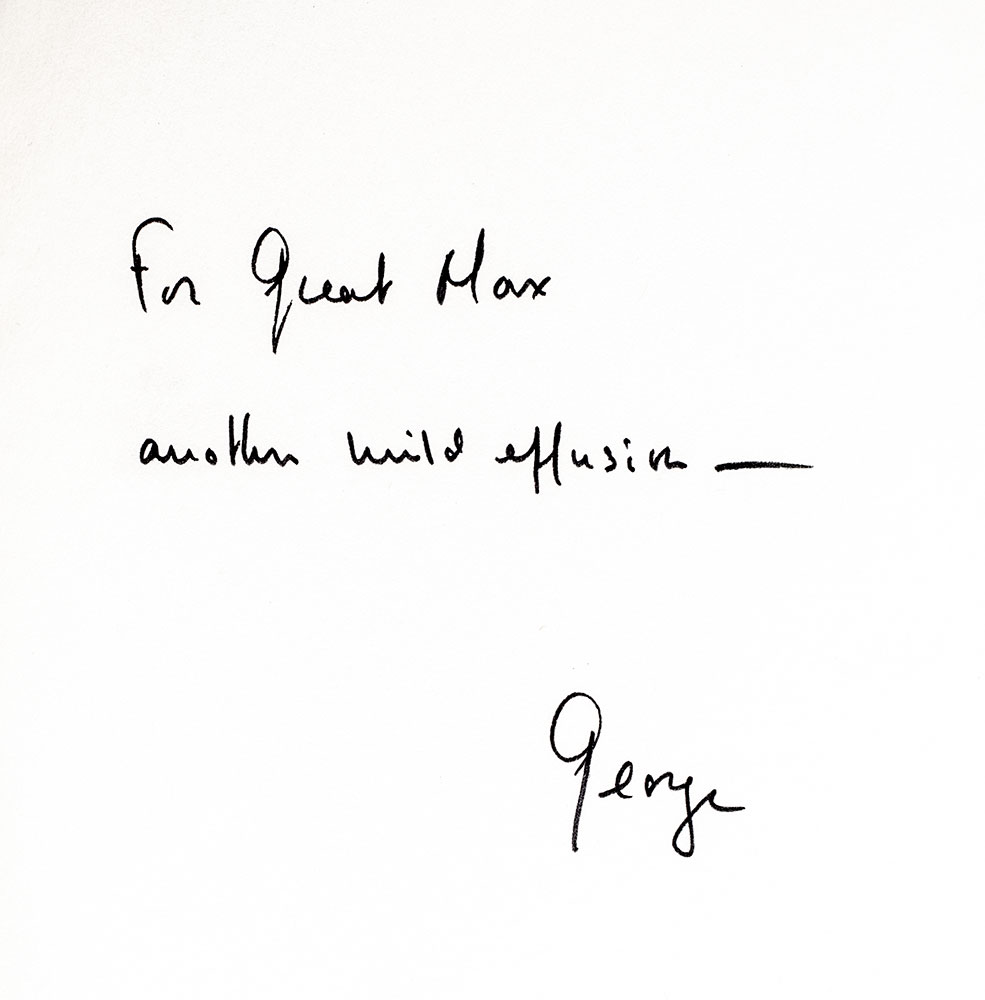 For Great Max
another mild effusion —
George